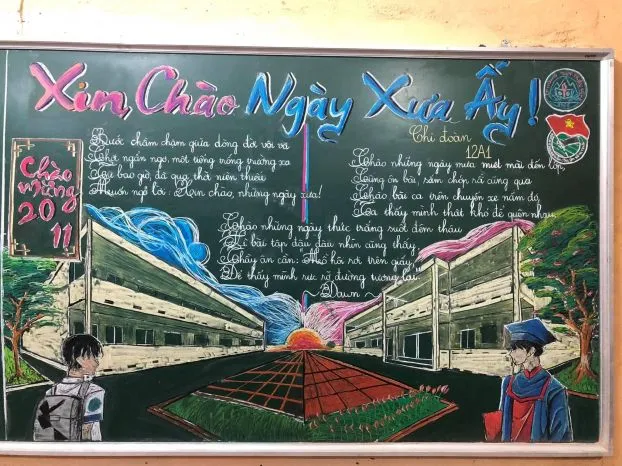 Xin Chào Ngày Xưa Ấy!
Chi đoàn
12A1
Chào
mừng
20
11
Bước chầm chậm giữa dòng đời vội vã
Chợt ngẩn ngơ, một tiếng trống trường xa
Tự bao giờ, đã qua, thời niên thiếu
Muốn ngỏ lời: Xin chào, những ngày xưa!
Chào những ngày mưa miệt mài đến lớp,
Cùng ôn bài, sấm chớp rồi cũng qua
Chào bài ca trên chuyến xe năm đó,
Ta thấy mình thật khó để quên nhau.
Chào những ngày thức trắng suốt đêm thâu
Vì bài tập đau đầu nhìn cũng thấy,
Thầy ân cần: Mồ hôi rơi trên giấy,
Để thấy mình rực rỡ đường tương lai"
~Dawn~